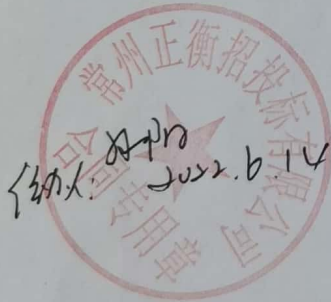 常州正衡招投标有限公司
合同专用章
经办人:
2022.6.14